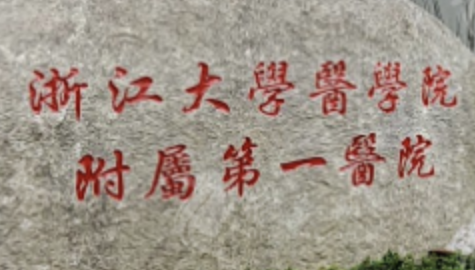 浙江大學醫學院
附屬第一醫院